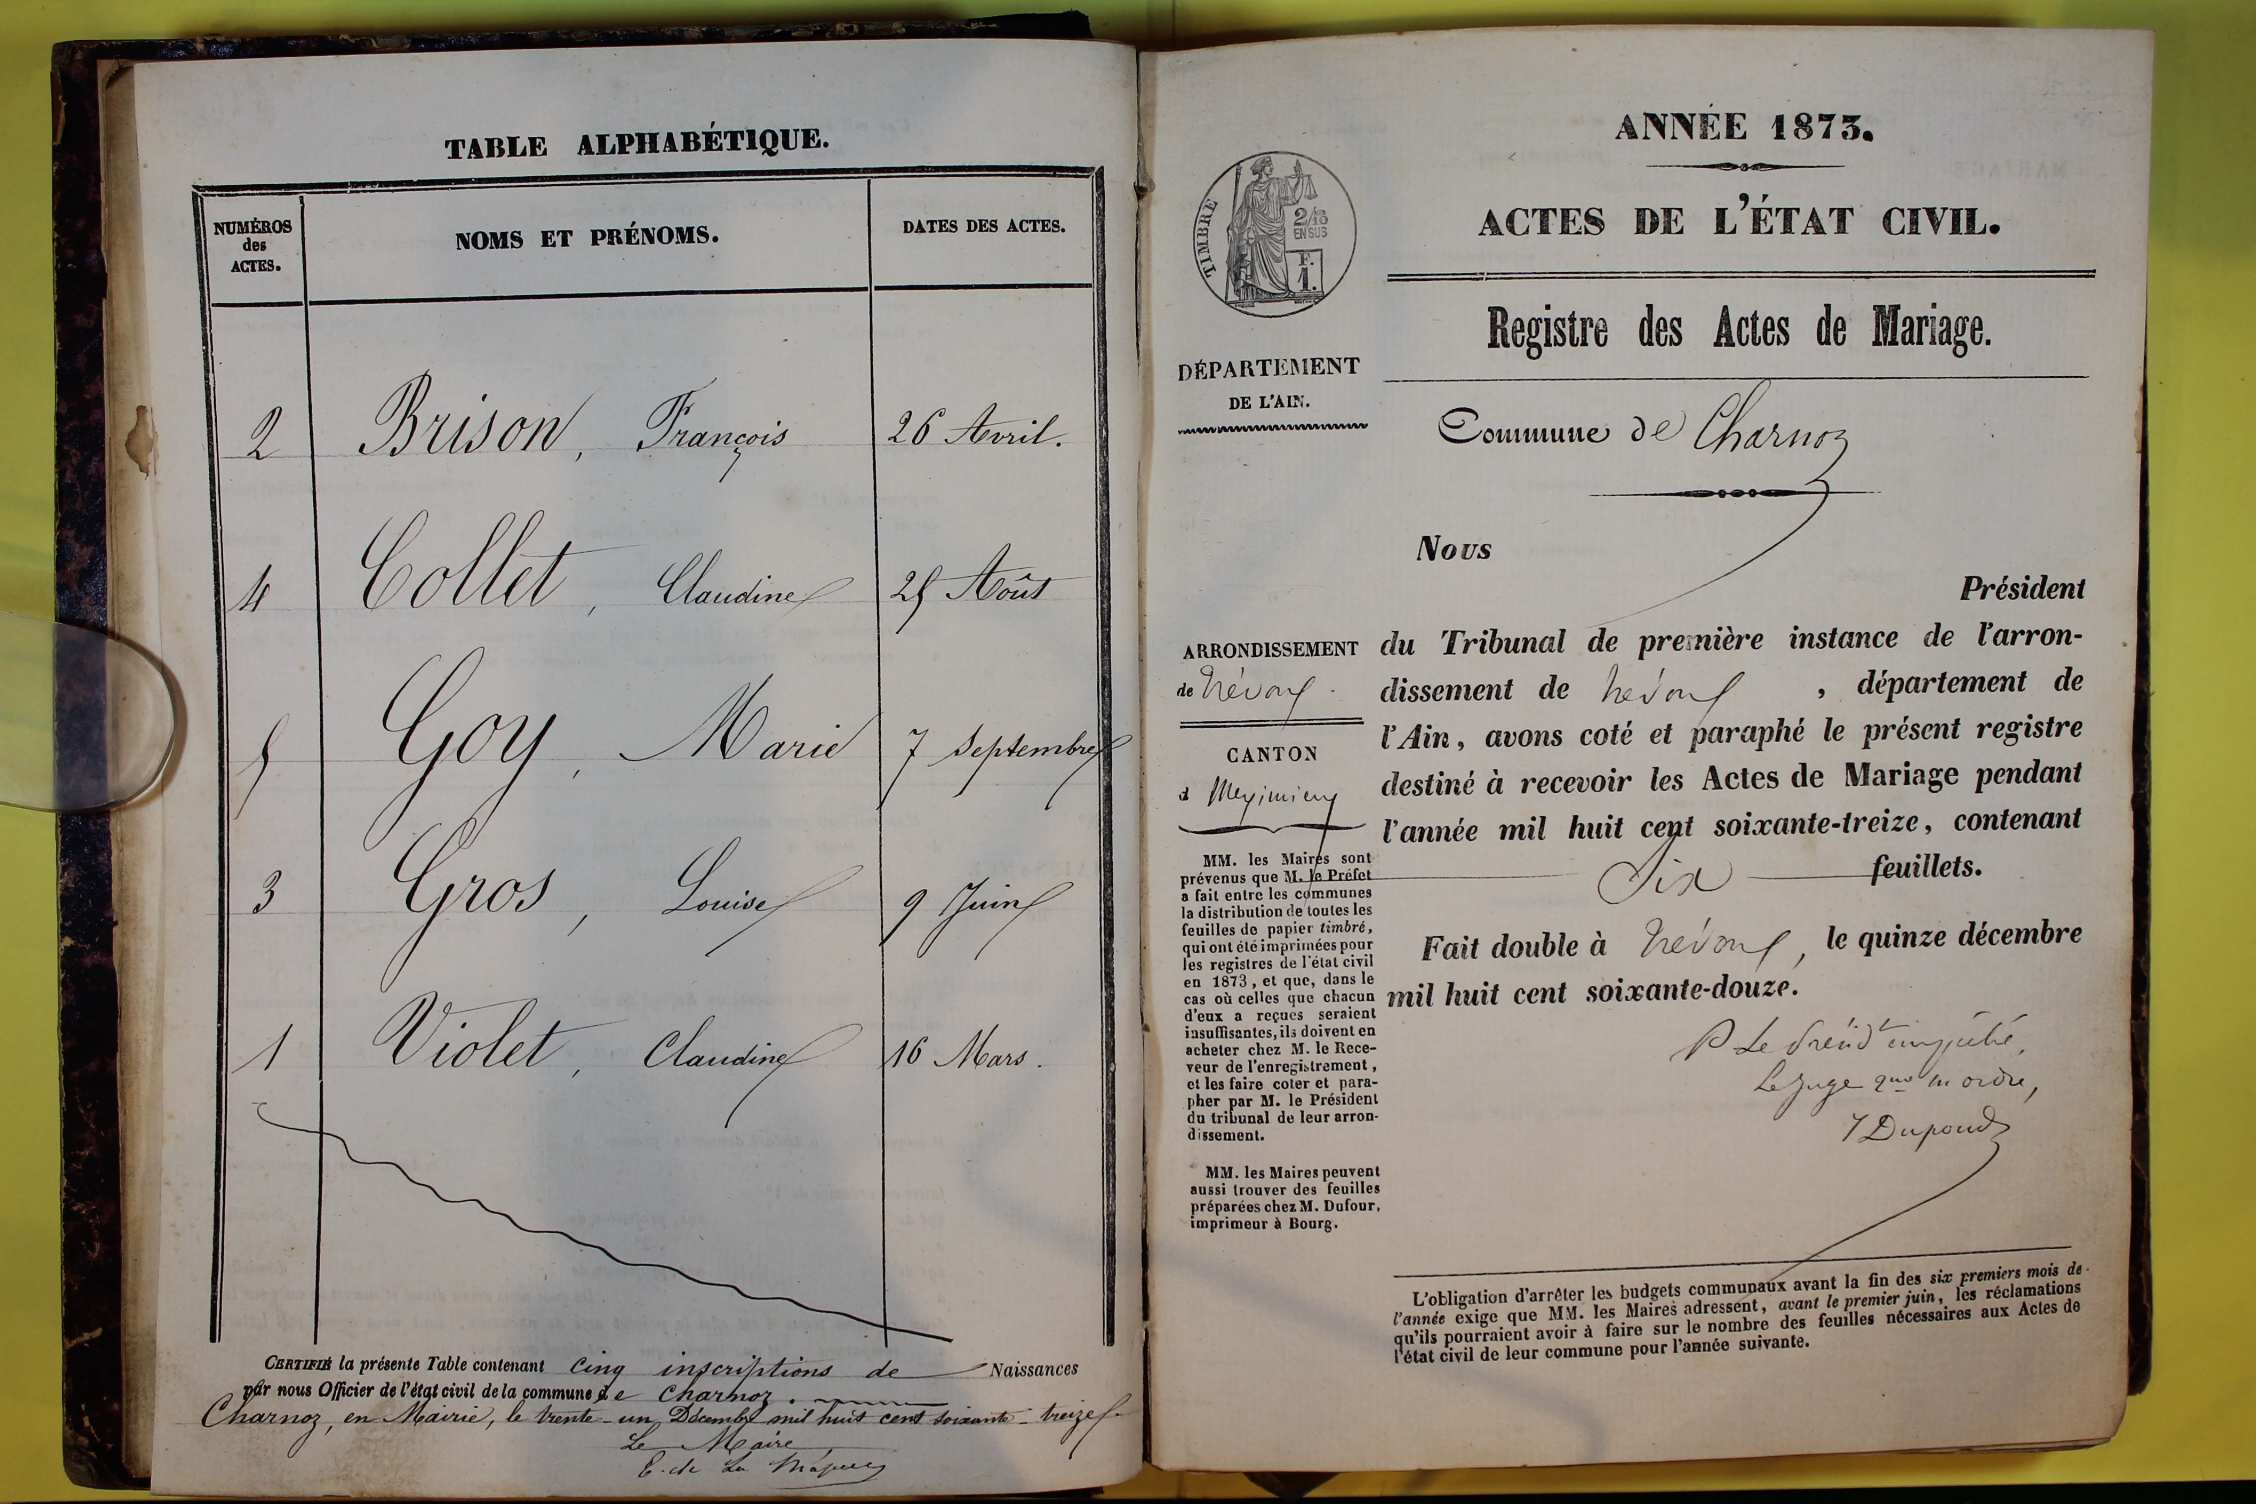 TABLE ALPHABÉTIQUE.
NUMÉROS
des
ACTES.
NOMS ET PRÉNOMS.
DATES DES ACTES.
2 Brison, François 26 Avril.
4 Collet, Claudine 25 Août
5 Goy, Marie 7 Septembre
3 Gros, Louise 9 Juin
1 Violet, Claudine 16 Mars.
CERTIFIÉ la présente Table contenant cinq inscriptions de Naissances
par nous Officier de l'état civil de la commune de Charnoz.
Charnoz, en Mairie, le trente-un Décembre mil huit cent soixante-treize
Le Maire
E. de La
ANNÉE 1873.
ACTES DE L'ÉTAT CIVIL.
Registre des Actes de Mariage.
TIMBRE
2/10
EN SUS
F.
1.
DÉPARTEMENT
DE L'AIN.
Commune de Charnoz
Nous
Président
du Tribunal de première instance de l'arron-
dissement de Trévoux, département de
l'Ain, avons coté et paraphé le présent registre
destiné à recevoir les Actes de Mariage pendant
l'année mil huit cent soixante-treize, contenant
Six feuillets.
Fait double à Trévoux, le quinze décembre
mil huit cent soixante-douze.
P Le Présidt empêché,
Le Juge en ordre,
Dupond
ARRONDISSEMENT
de Trévoux.
CANTON
d Meximieux
MM. les Maires sont
prévenus que M. le Préfet
a fait entre les communes
la distribution de toutes les
feuilles de papier timbré,
qui ont été imprimées pour
les registres de l'état civil
en 1873, et que, dans le
cas où celles que chacun
d'eux a reçues seraient
insuffisantes, ils doivent en
acheter chez M. le Rece-
veur de l'enregistrement,
et les faire coter et para-
pher par M. le Président
du tribunal de leur arron-
dissement.
MM. les Maires peuvent
aussi trouver des feuilles
préparées chez M. Dufour,
imprimeur à Bourg.
L'obligation d'arrêter les budgets communaux avant la fin des six premiers mois de
l'année exige que MM. les Maires adressent, avant le premier juin, les réclamations
qu'ils pourraient avoir à faire sur le nombre des feuilles nécessaires aux Actes de
l'état civil de leur commune pour l'année suivante.